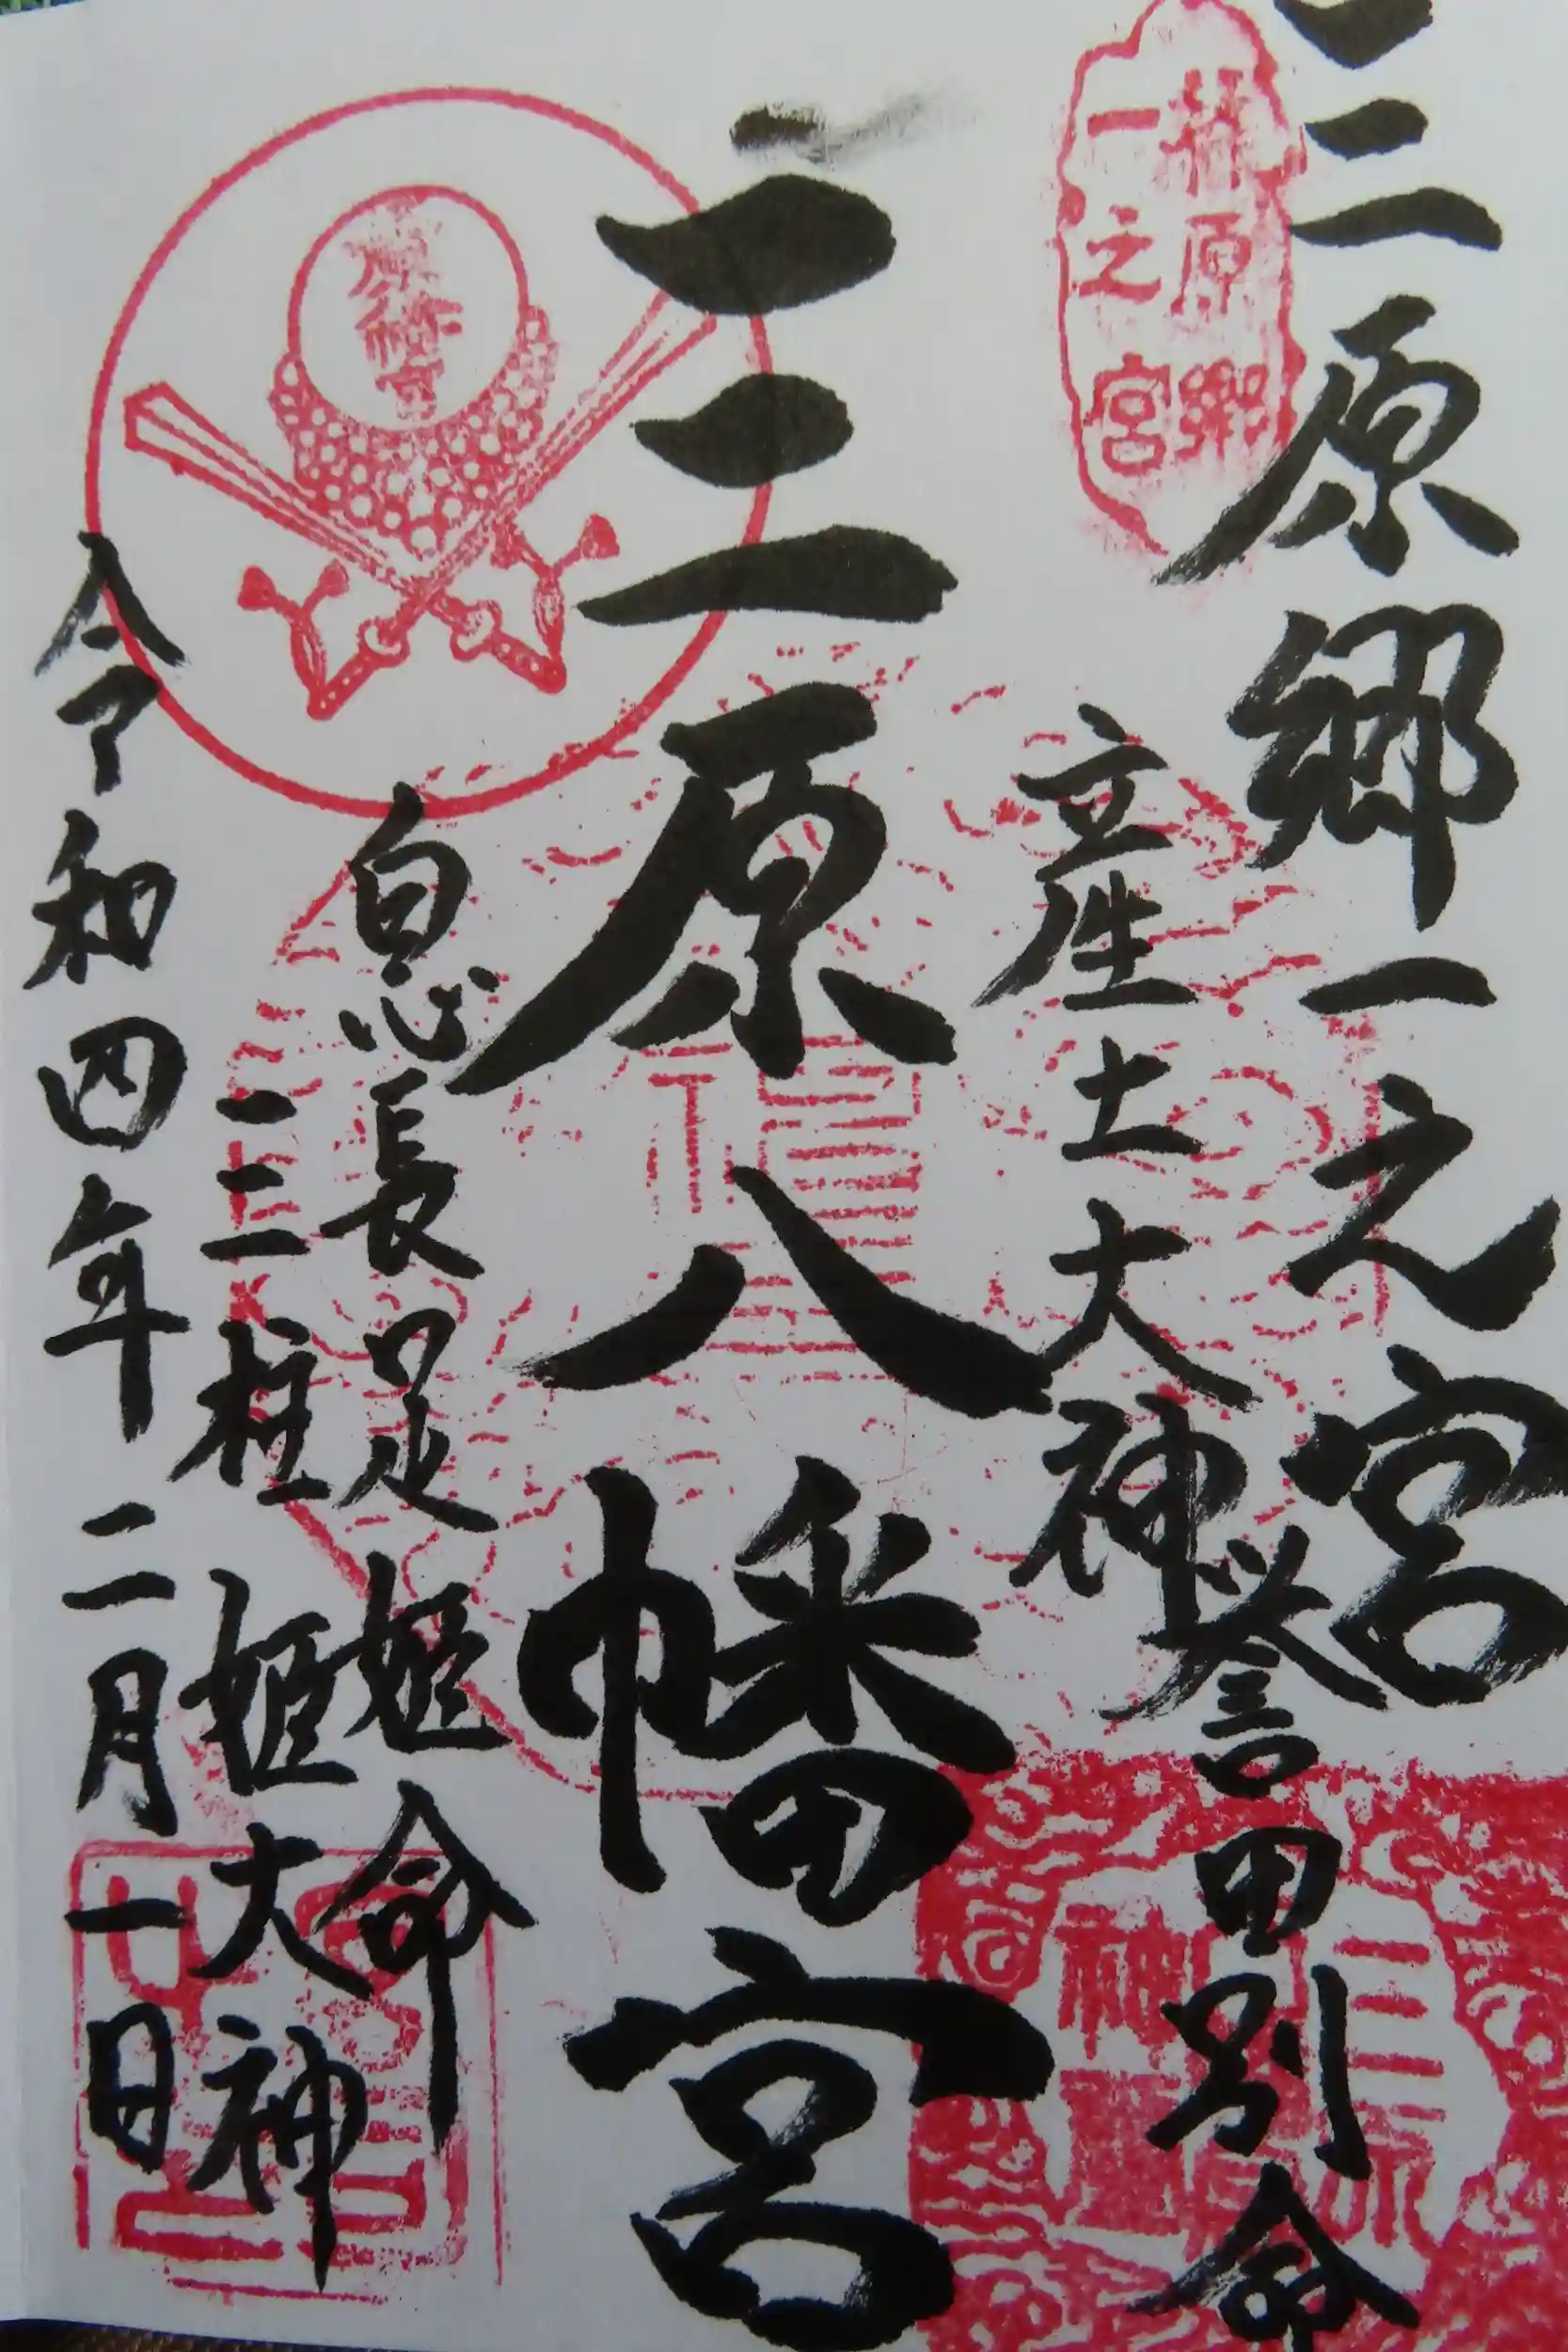 三原郷一之宮
誉田別命
立産土大神
三原八幡宮
息長足姫命
三柱姫大神
令和四年二月一日
原郷
一之宮